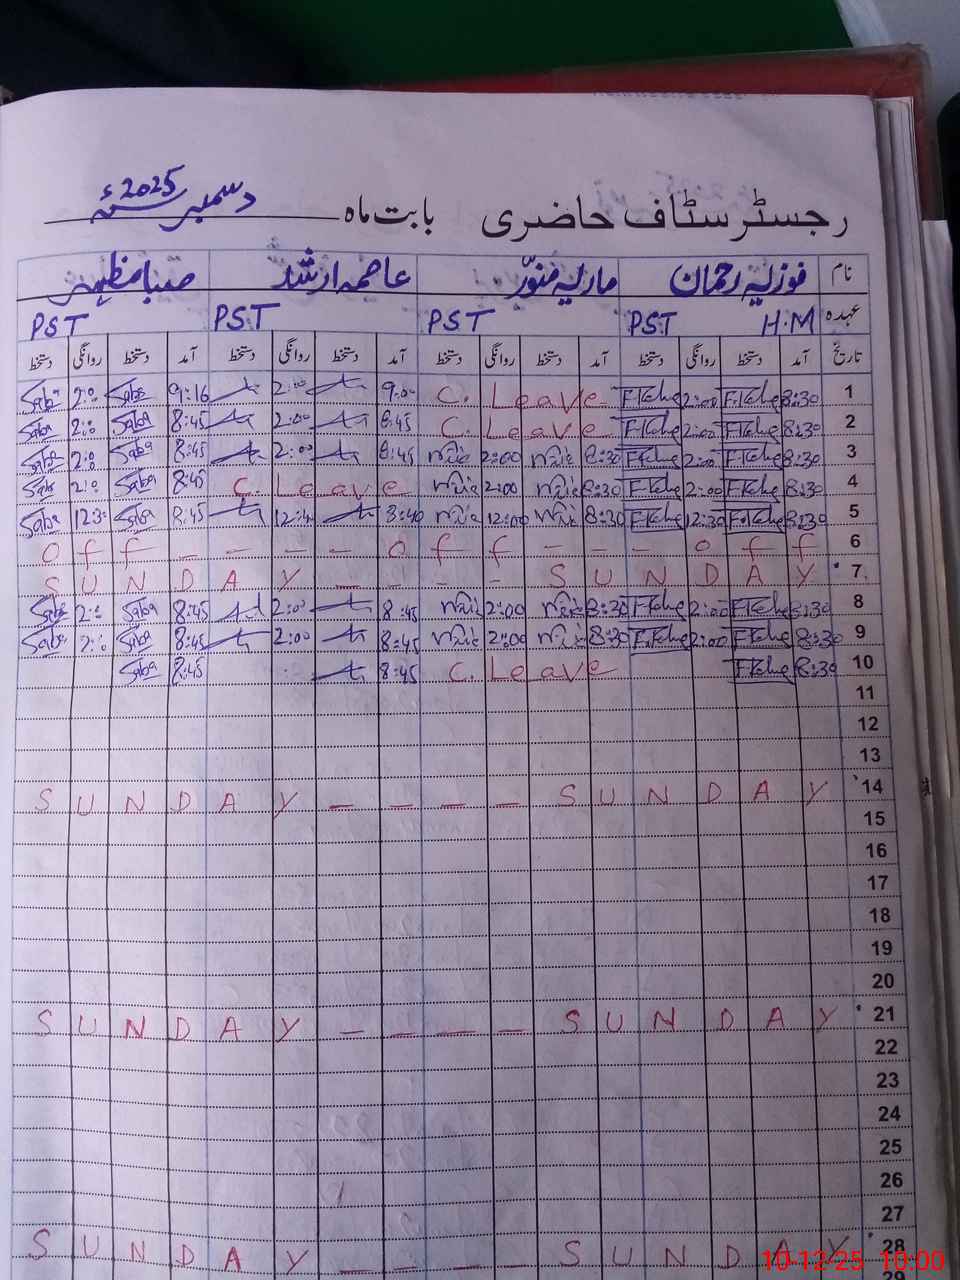 رجسٹر سٹاف حاضری بابت ماہ دسمبر 2025ء
نام فوزیہ رحمان ماریہ منور عاصمہ ارشد صبا مظہر
عہدہ H.M PST PST PST PST
تاریخ آمد دستخط روانگی دستخط آمد دستخط روانگی دستخط آمد دستخط روانگی دستخط آمد دستخط روانگی دستخط
1 8:30 2:00 C. Leave 9:00 2:00 9:16 Saba 2:0
2 8:30 2:00 C. Leave 8:45 2:00 8:45 Saba 2:0 Saba
3 8:30 2:00 8:30 2:00 8:45 2:00 8:45 Saba 2:0 Saba
4 8:30 2:00 8:30 2:00 C. Leave 8:45 Saba 2:0 Sab
5 8:30 12:30 8:30 12:00 8:40 12:4 8:45 Saba 12:3 Saba
6 off - - - - off - - - off
7 SUNDAY - - - - SUNDAY
8 8:30 2:00 8:30 2:00 8:45 2:00 8:45 Saba 2:0 Saba
9 8:30 2:00 8:30 2:00 8:45 2:00 8:45 Saba 2:0 Saba
10 8:30 C. Leave 8:45 8:45 Saba
11
12
13
14 SUNDAY - - - - SUNDAY
15
16
17
18
19
20
21 SUNDAY - - - - SUNDAY
22
23
24
25
26
27
28 SUNDAY - - - - SUNDAY
10-12-25 10:00